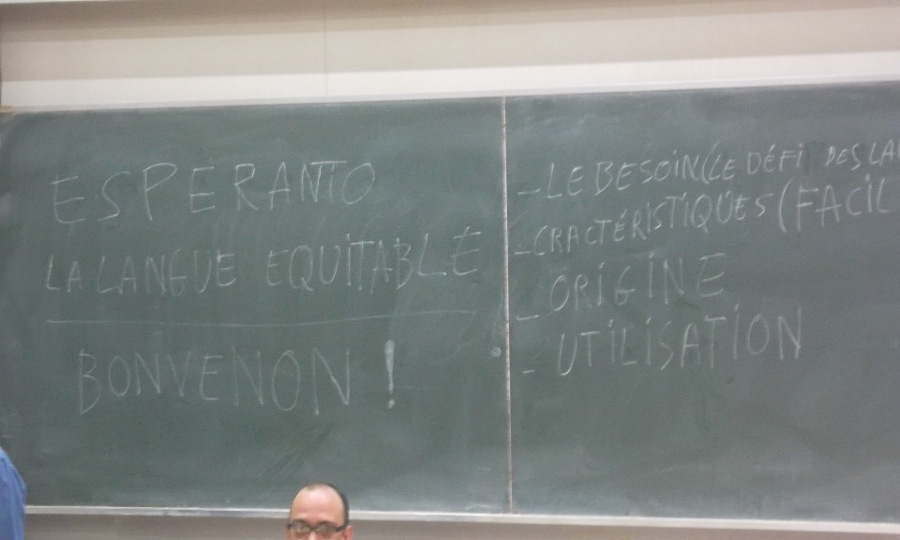 ESPERANTO
LA LANGUE EQUITABLE
BONVENON !
- LE BESOIN (LE DÉFI DES LA
- CRACTÉRISTIQUES (FACIL
- ORIGINE
- UTILISATION